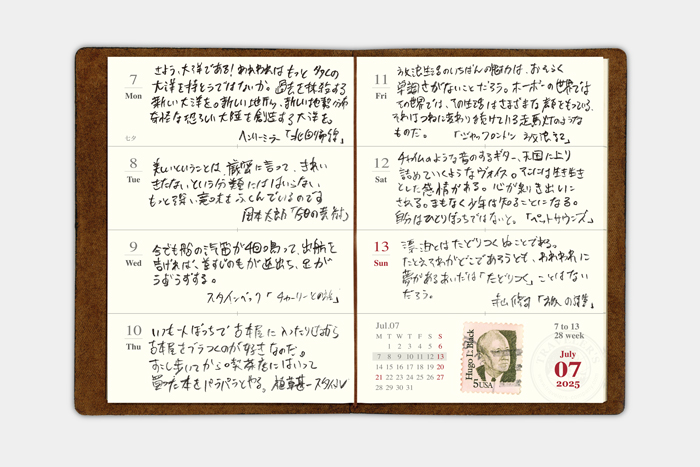 7
Mon
七夕
さよう、大洋である！われわれはもっと多くの
大洋を持とうではないか。過去を抹殺する
新しい大洋を。新しい地質、新しい
大陸を創造する大洋を。
ヘンリー・ミラー「北回帰線」
8
Tue
美しいということは、厳密に言って、きれい
きたないという分類にはいらない、
もっと深い意味をふくんでいるのです
岡本太郎「今日の芸術」
9
Wed
今でも船の汽笛が4回鳴って、出航を
告げれば、首すじのもが逆立ち、足が
うずうずする。
スタインベック「チャーリーとの旅」
10
Thu
いつも一人ぼっちで古本屋に入ったりしながら
古本屋をブラつくのが好きなのだ。
すこし歩いてから喫茶店にはいって
買った本をパラパラとやる。植草甚一スタイル
11
Fri
放浪生活のいちばんの魅力は、おそらく
単調さがないことだろう。ホーボーの世界では
その世界では、その生活はさまざまな顔をもっている
それはつねに変わり続けている走馬灯のような
ものだ。「ジャック・ロンドン放浪記」
12
Sat
チェンバロのような音のするギター、天国に上り
詰めていくようなヴォイス。そこには生き生き
とした感情がある。心が剥き出しに
される。まもなく少年は知ることになる。
自分はひとりぼっちではないと。「ペット・サウンズ」
13
Sun
漂泊とはたどりつくぬことである。
たとえそれがどこであろうとも、われわれに
夢があるあいだは「たどりつく」ことはない
だろう。
Jul.07
M T W T F S S
1 2 3 4 5 6
7 8 9 10 11 12 13
14 15 16 17 18 19 20
21 22 23 24 25 26 27
28 29 30 31
Hugo L. Black
5USA
7 to 13
28 week
July
07
2025